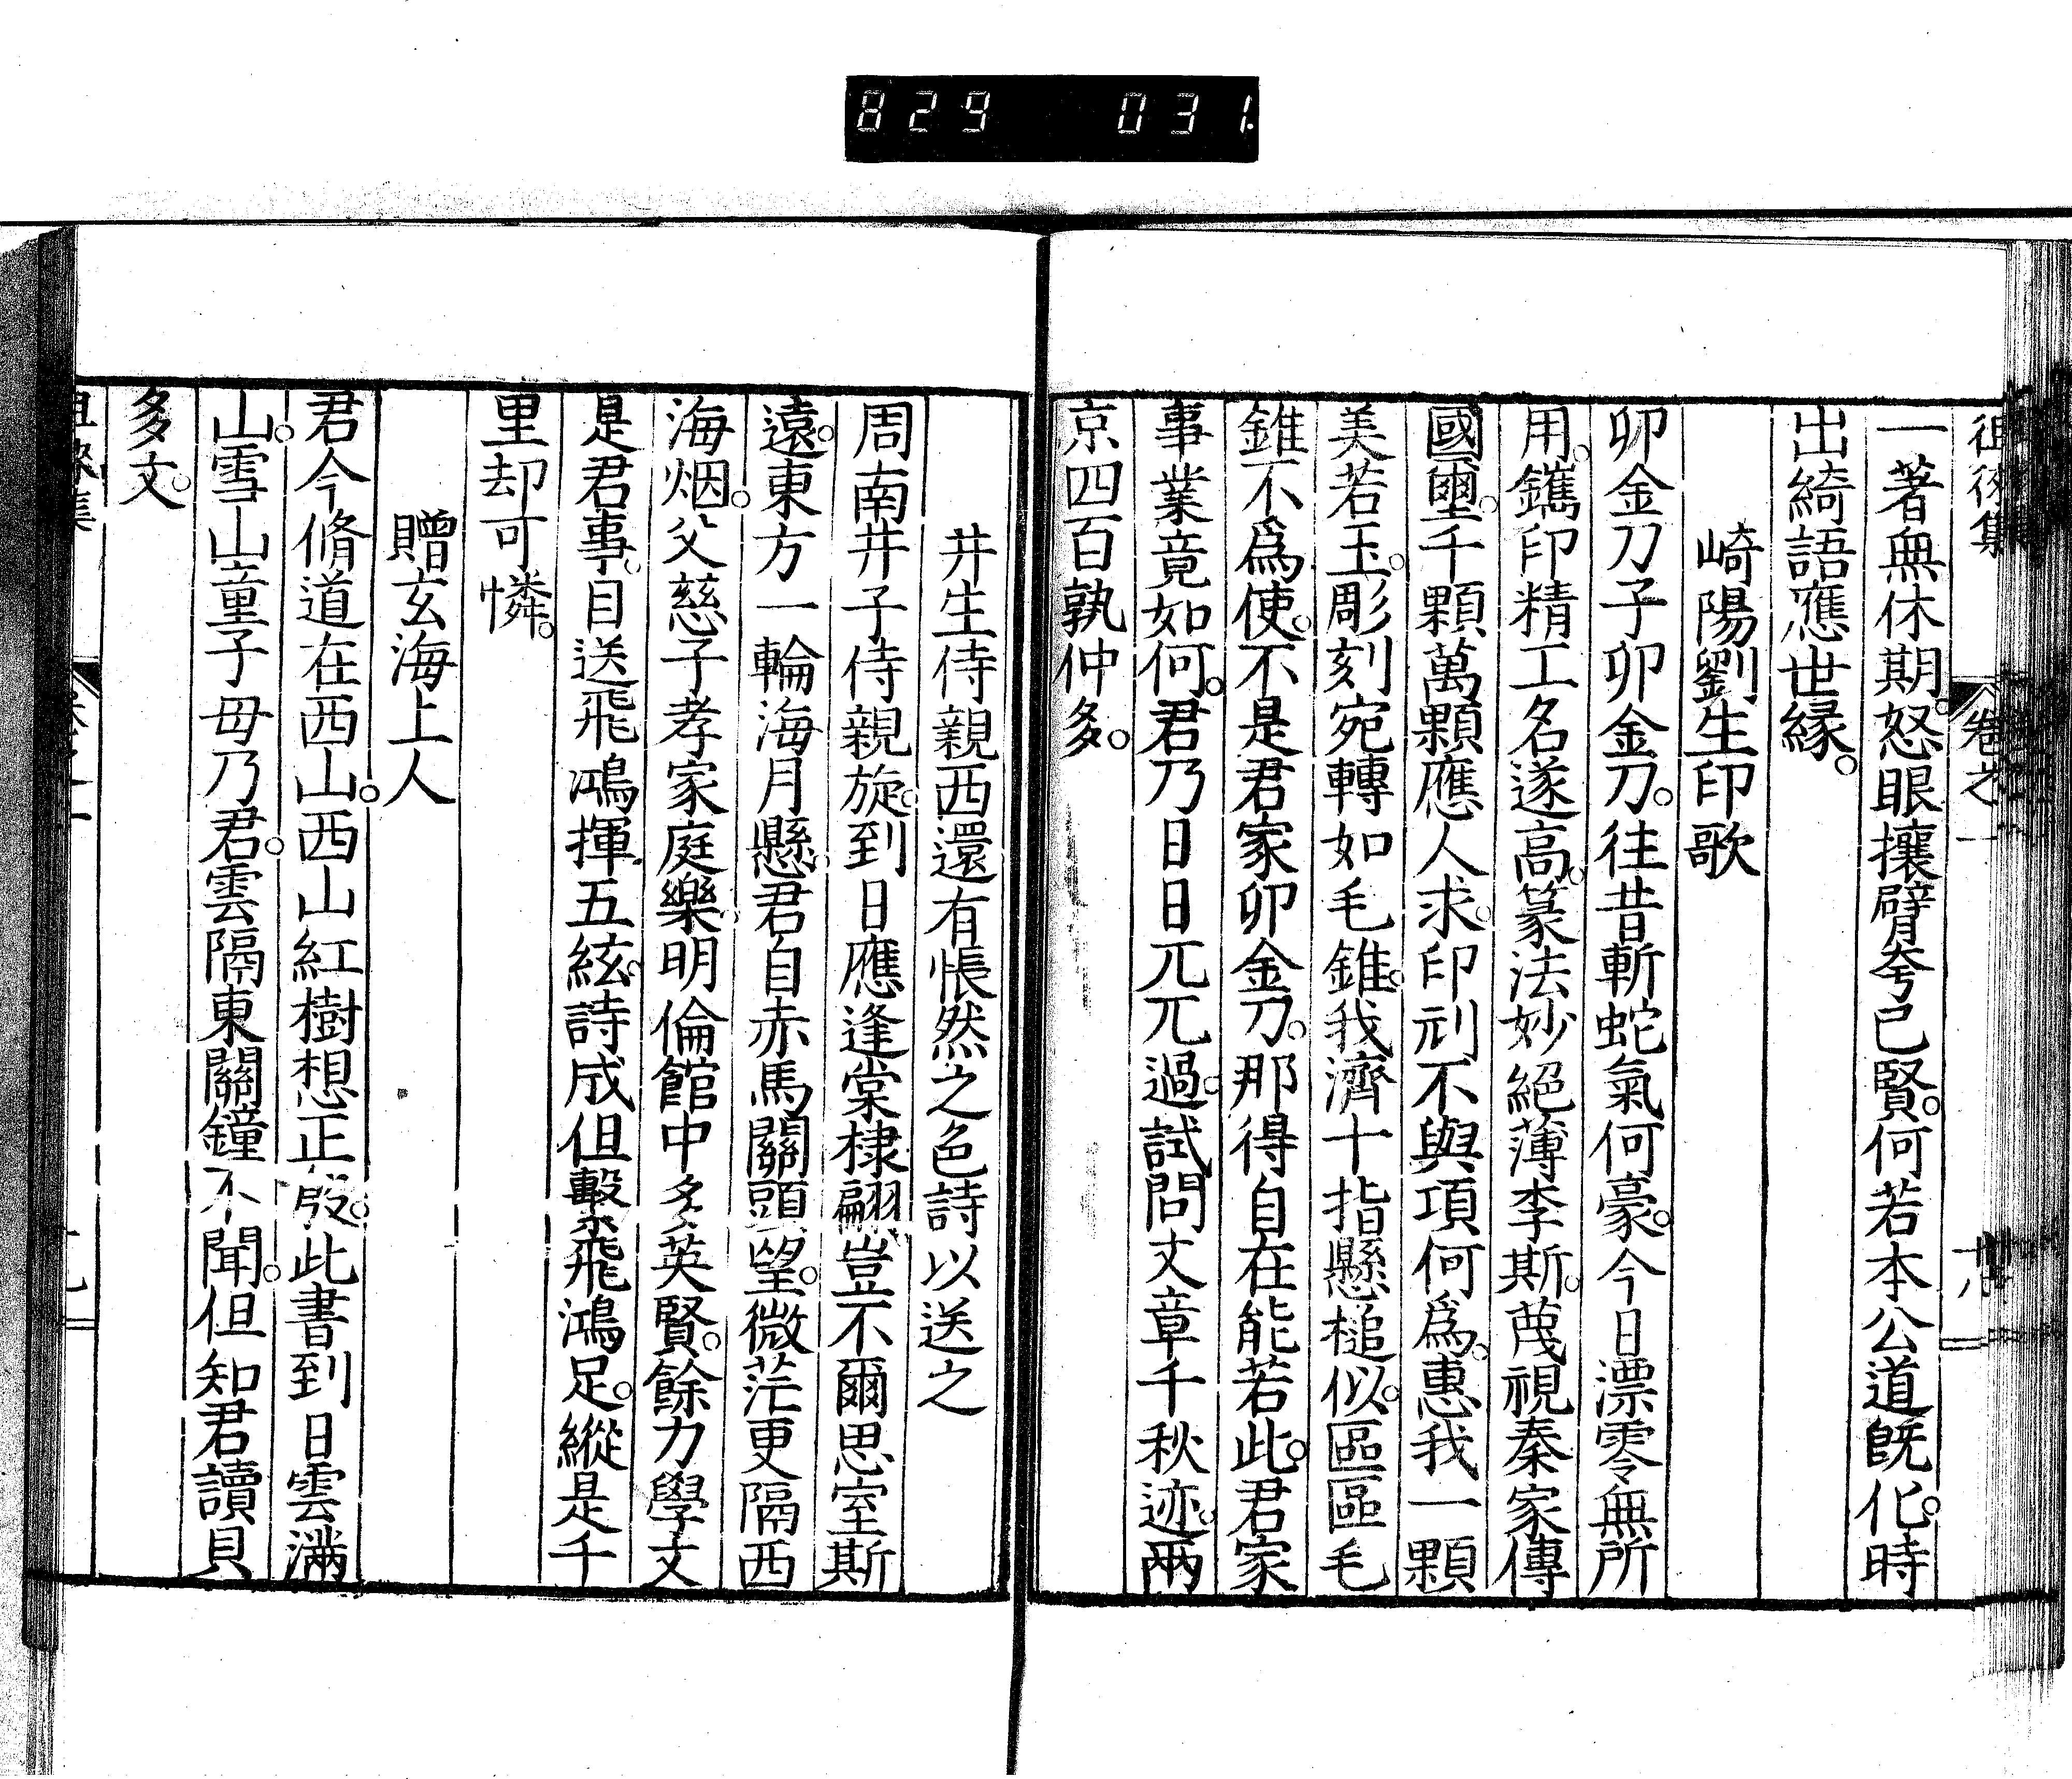 829 031.
徂徠集 卷之一 十八
一著無休期。怒眼攘臂夸己賢。何若本公道既化。時
出綺語應世緣。
崎陽劉生印歌
卯金刀子卯金刀。往昔斬蛇氣何豪。今日漂零無所
用。鐫印精工名遂高。篆法妙絕薄李斯。蔑視秦家傳
國璽。千顆萬顆應人求。印刓不與項何爲。惠我一顆
美若玉。彫刻宛轉如毛錐。我濟十指懸槌似。區區毛
錐不爲使。不是君家卯金刀。那得自在能若此。君家
事業竟如何。君乃日日兀兀過。試問文章千秋迹。兩
京四百孰仲多。
井生侍親西還有悵然之色詩以送之
周南井子侍親旋。到日應逢棠棣翩。豈不爾思室斯
遠。東方一輪海月懸。君自赤馬關頭望。微茫更隔西
海烟。父慈子孝家庭樂。明倫館中多英賢。餘力學文
是君事。目送飛鴻揮五絃。詩成但擊飛鴻足。縱是千
里却可憐。
贈玄海上人
君今脩道在西山。西山紅樹想正殷。此書到日雲滿
山。雪山童子毋乃君。雲隔東關鐘不聞。但知君讀貝
多文。